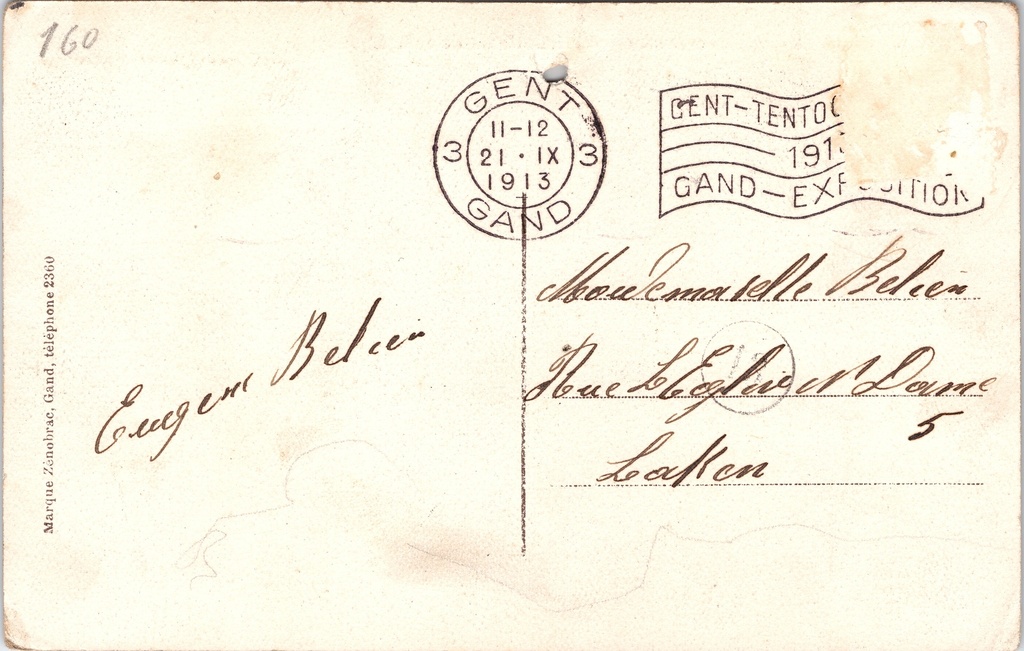 160
GENT
11-12
3 21 · IX 3
1913
GAND
GENT-TENTOO
191
GAND-EXPOSITION
Marque Zénobrac, Gand, téléphone 2360
Eugene Belien
Moudemaselle Belien
Rue L Eglise N Dame
5
Laken